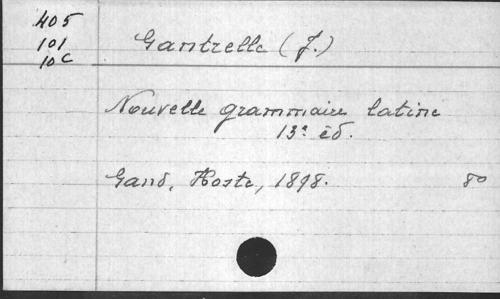 405
101
10C
Gantrelle (J.)
Nouvelle grammaire latine
13e éd.
Gand, Hoste, 1898.
8o